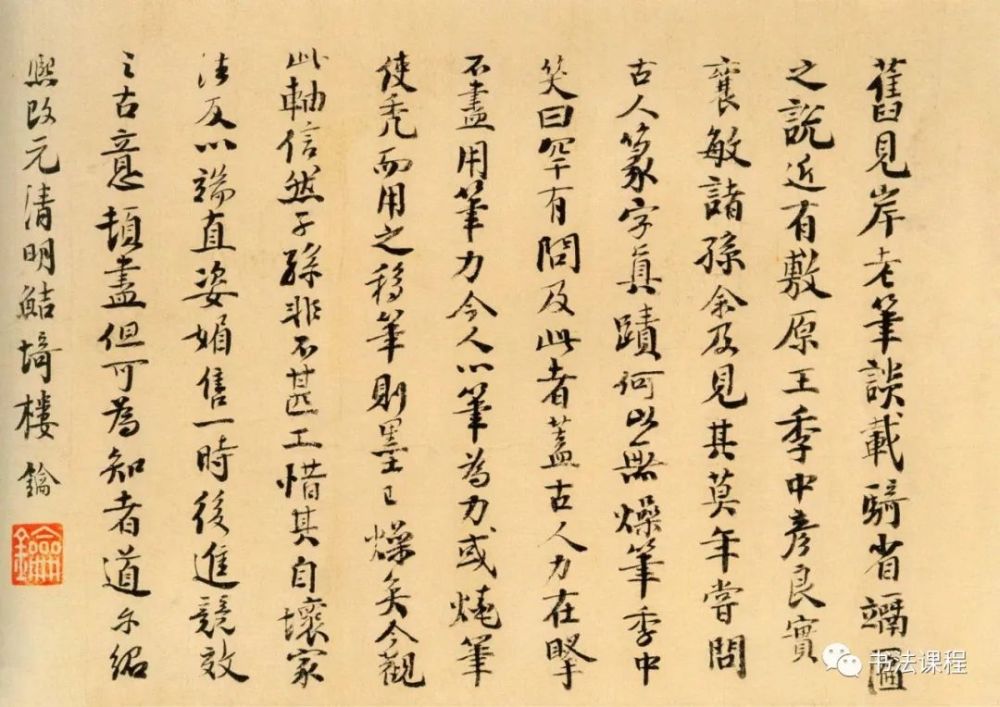 舊見岸老筆談載騎省𧤗匾
之說近有敷原王季中彥良實
襄敏諸孫余及見其莫年嘗問
古人篆字真蹟何以無燥筆季中
笑曰罕有問及此者蓋古人力在腕
不盡用筆力今人以筆為力或燒筆
使禿而用之移筆則墨已燥矣今觀
此軸信然子孫非不甚工惜其自壞家
法反以端直姿媚售一時後進競效
之古意頓盡但可為知者道尔紹
熙改元清明鮚埼樓 鑰
鑰
书法课程